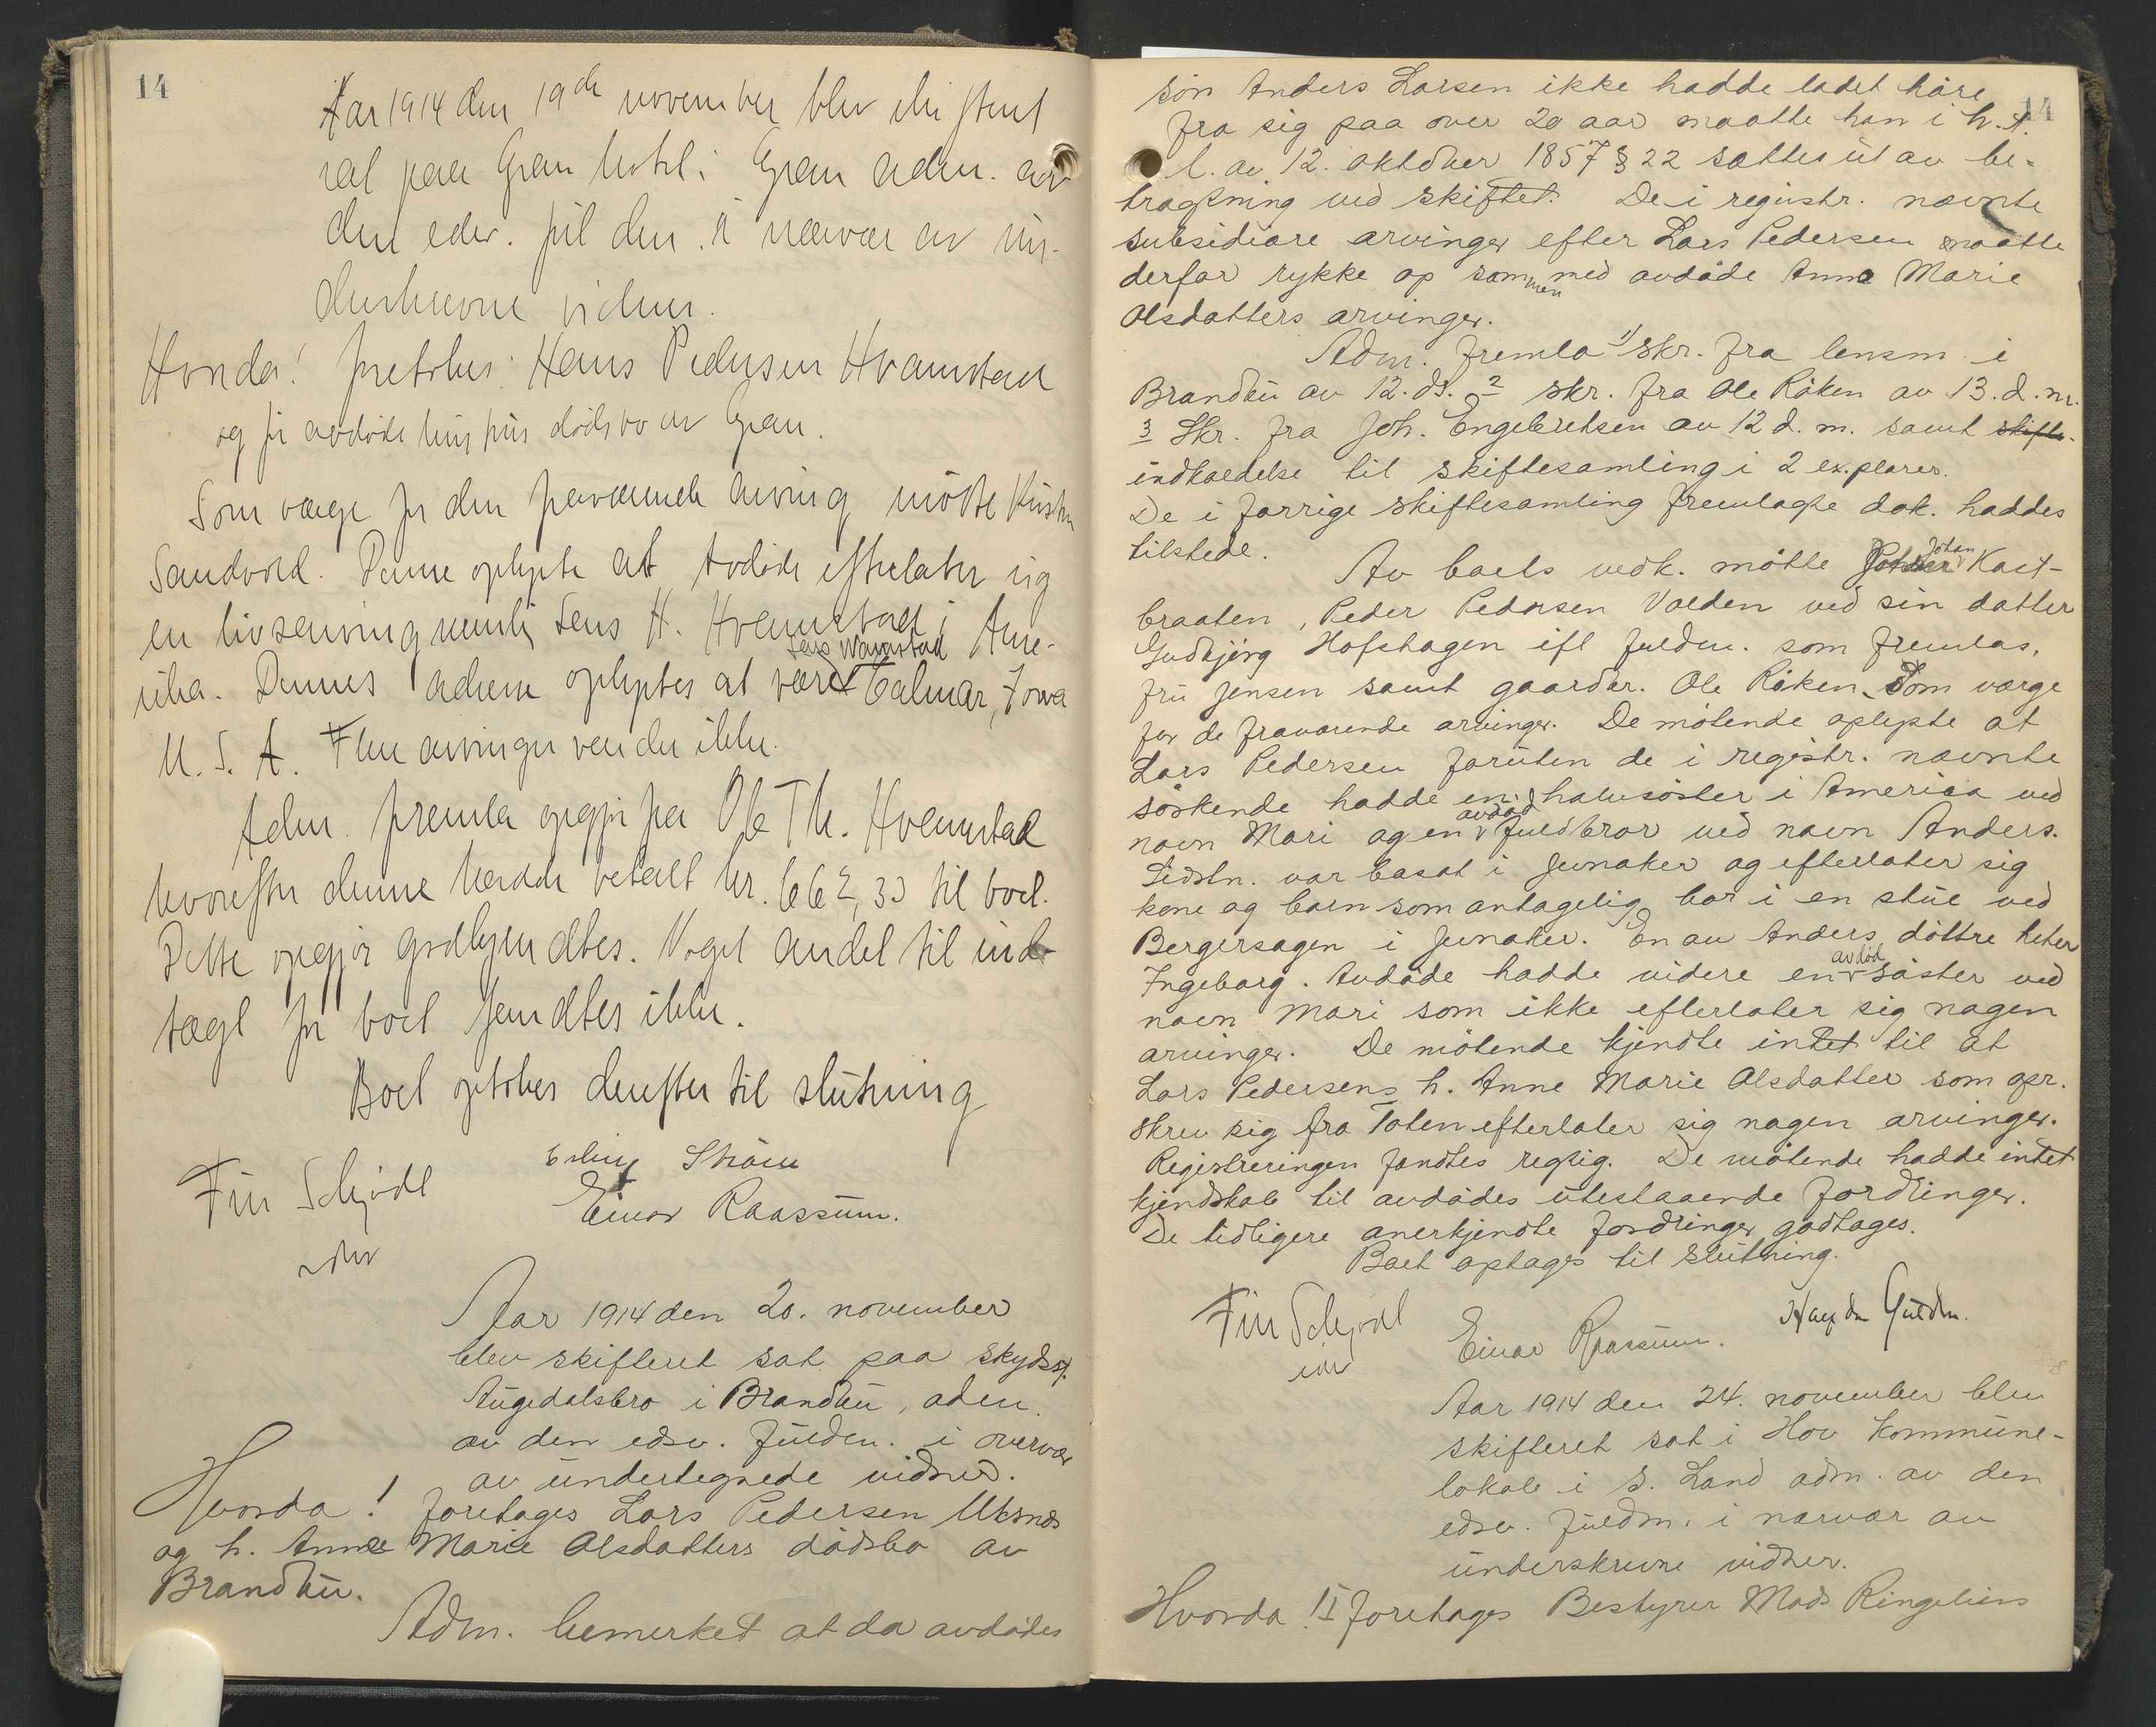 14
Aar 1914 den 19de november blev skifteret
sat paa Gran hotel i Gran adm. av
den edsv. fuldm. i nærvær av un-
derskrevne vidner.
Hvorda! foretokes: Hans Pedersen Hvamstad
og før avdøde hustrus dødsbo av Gran.
Som værge for den fraværende arving møtte Kristen
Sandvold. Denne oplyste at Avdøde efterlater sig
en livsarving nemlig Jens H. Hvamstad i Ame-
rika. Dennes adresse oplystes at være Jens Wamstad Calmar, Iowa
U. S. A. Flere arvinger var der ikke.
Adm. fremla opgjør fra Ole Th. Hvamstad
hvorefter denne hadde betalt kr. 662,33 til boet.
Dette opgjør godkjendtes. Noget andet til ind-
tægt for boet fandtes ikke.
Boet optokes derefter til slutning
Fin Schjødt
edsv
Erling Strøm
Einar Raassum.
Aar 1914 den 20. november
blev skifteret sat paa skydsst.
Augedalsbro i Brandbu, adm.
av den edsv. fuldm. i overvær
av undertegnede vidner.
Hvorda! foretages Lars Pedersen
og h. Anne Marie Olsdatters dødsbo av
Brandbu.
Adm. bemerket at da avdødes
14
søn Anders Larsen ikke hadde ladet høre
fra sig paa over 20 aar maatte han i h. t.
l. av 12. oktober 1857 § 22 sættes ut av be-
tragtning ved skiftet. De i registr. nævnte
subsidiære arvinger efter Lars Pedersen maatte
derfor rykke op sammen med avdøde Anne Marie
Olsdatters arvinger.
Adm. fremla 1) skr. fra lensm. i
Brandbu av 12. ds. 2 skr. fra Ole Røken av 13. d. m.
3 Skr. fra Joh. Engebretsen av 12 d. m. samt skifte-
indkaldelse til skiftesamling i 2 ex.plarer.
De i forrige skiftesamling fremlagte dok. haddes
tilstede.
Av boets vedk. møtte Johan Kast-
braaten, Peder Pedersen Volden ved sin datter
Gudbjørg Hofshagen ifl fuldm. som fremlas,
fru Jensen samt gaardbr. Ole Røken som værge
for de fraværende arvinger. De møtende oplyste at
Lars Pedersen foruten de i registr. nævnte
søskende hadde en halvsøster i America ved
navn Mari og en avdød fuldbror ved navn Anders.
Sidstn. var bosat i Jevnaker og efterlater sig
kone og barn som antagelig bor i en stue ved
Bergersagen i Jevnaker. En av Anders døttre heter
Ingeborg. Avdøde hadde videre en avdød søster ved
navn Mari som ikke efterlater sig nogen
arvinger. De møtende kjendte intet til at
Lars Pedersens h. Anne Marie Olsdatter som opr.
skrev sig fra Toten efterlater sig nogen arvinger.
Registreringen fandtes regtig. De møtende hadde intet
kjendskab til avdødes utestaaende fordringer.
De tidligere anerkjendte fordringer godtages.
Boet optages til slutning.
Fin Schjødt
edsv
Einar Raassum.
Aar 1914 den 24. november blev
skifteret sat i Hov kommune-
lokale i S. Land adm. av den
edsv. fuldm. i nærvær av
underskrevne vidner.
Hvorda! I foretages Bestyrer Mads Ringeliens